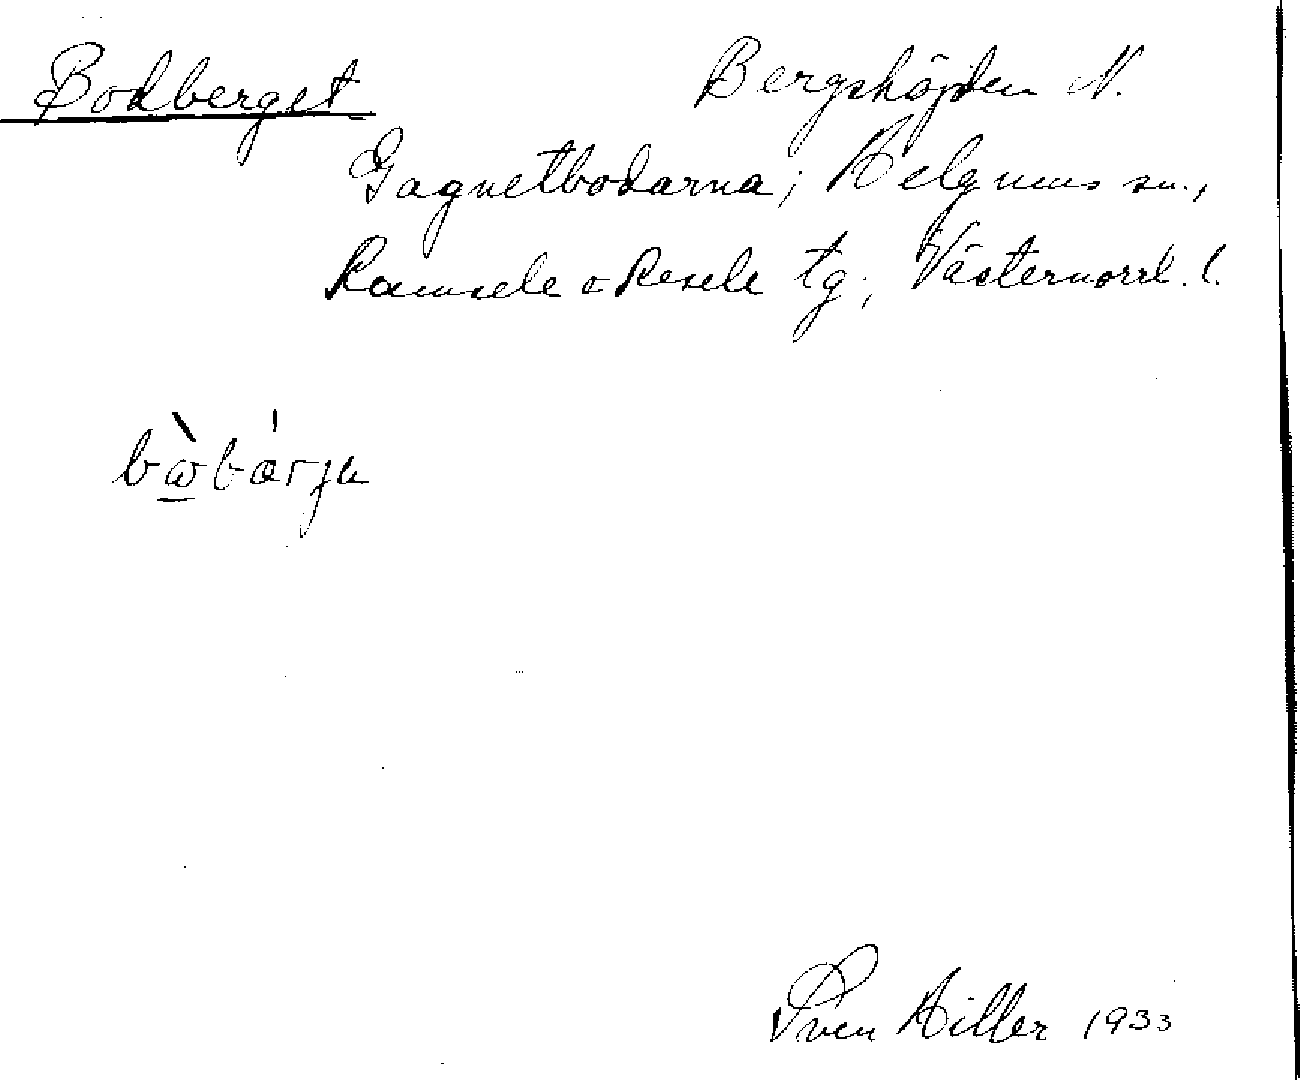 Bodberget Bergshöjden N.
Gagnetbodarna; Helgums sn.,
Ramsele o Resele tg; Västernorrl. l.
Sven Hiller 1933